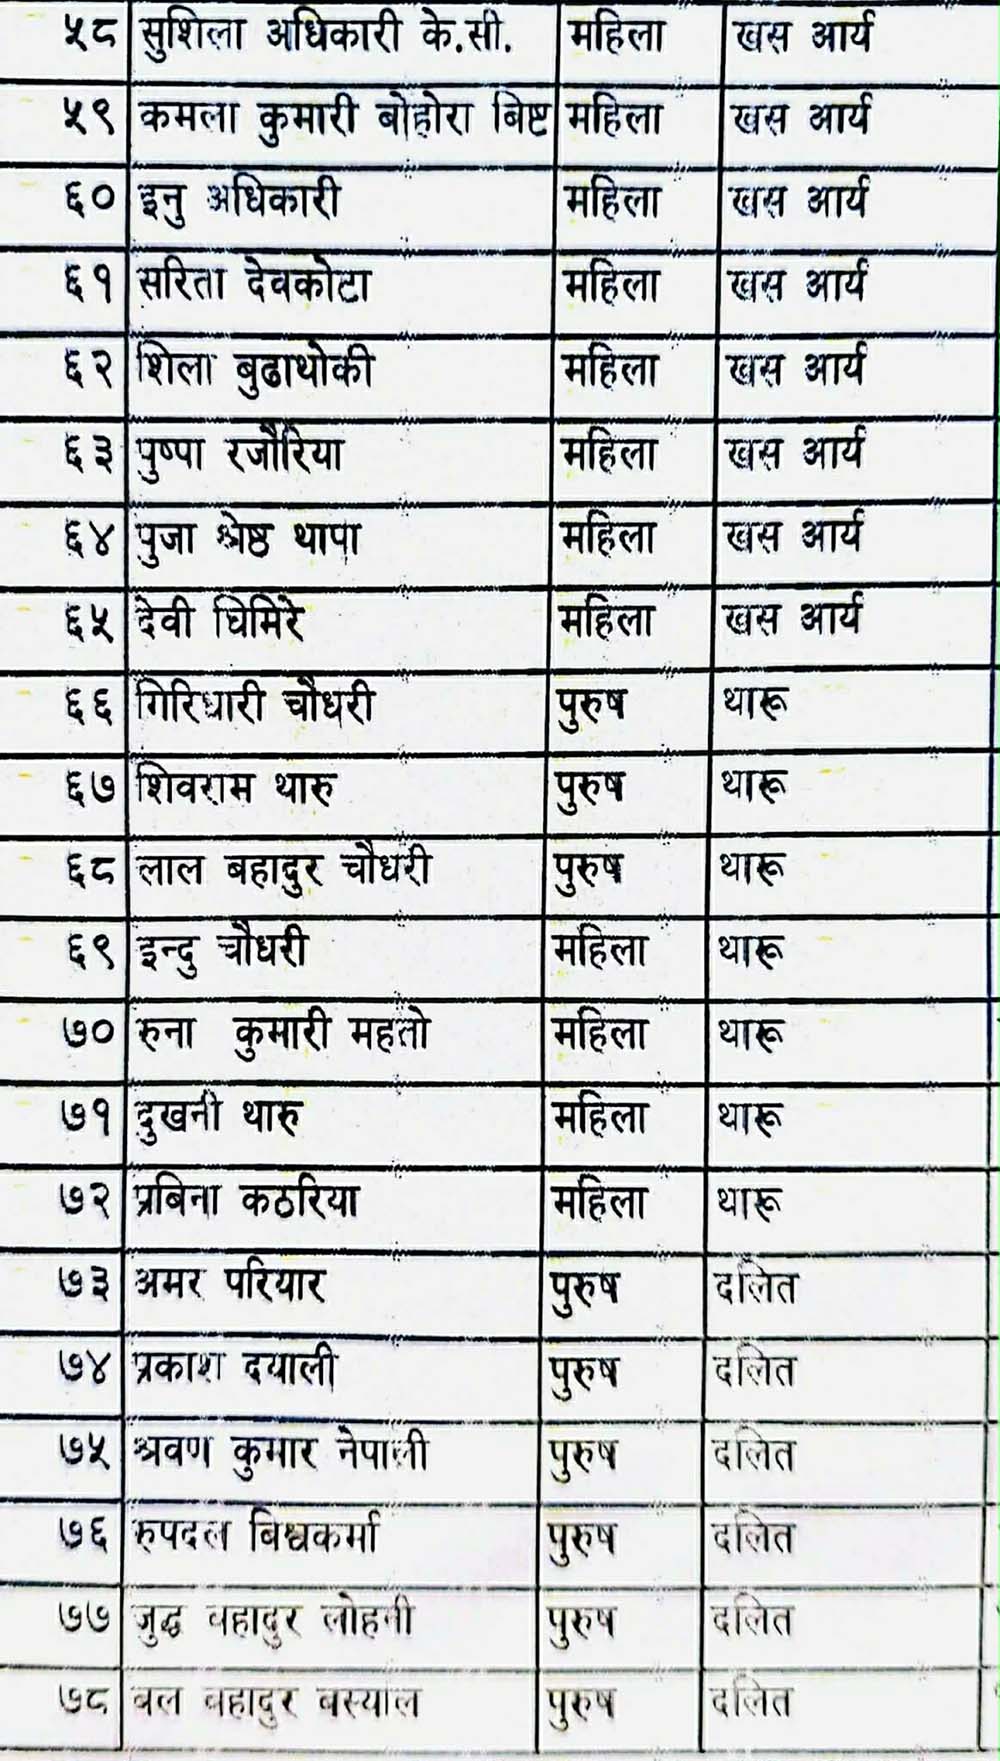 ५८ सुशिला अधिकारी के.सी. महिला खस आर्य
५९ कमला कुमारी बोहोरा बिष्ट महिला खस आर्य
६० इनु अधिकारी महिला खस आर्य
६१ सरिता देवकोटा महिला खस आर्य
६२ शिला बुढाथोकी महिला खस आर्य
६३ पुष्पा रजौरिया महिला खस आर्य
६४ पुजा श्रेष्ठ थापा महिला खस आर्य
६५ देवी घिमिरे महिला खस आर्य
६६ गिरिधारी चौधरी पुरुष थारू
६७ शिवराम थारु पुरुष थारू
६८ लाल बहादुर चौधरी पुरुष थारू
६९ इन्दु चौधरी महिला थारू
७० रुना कुमारी महतो महिला थारू
७१ दुखनी थारु महिला थारू
७२ प्रबिना कठरिया महिला थारू
७३ अमर परियार पुरुष दलित
७४ प्रकाश दयाली पुरुष दलित
७५ श्रवण कुमार नेपाली पुरुष दलित
७६ रुपदल बिश्वकर्मा पुरुष दलित
७७ जुद्ध वहादुर लोहनी पुरुष दलित
७८ वल वहादुर बस्याल पुरुष दलित